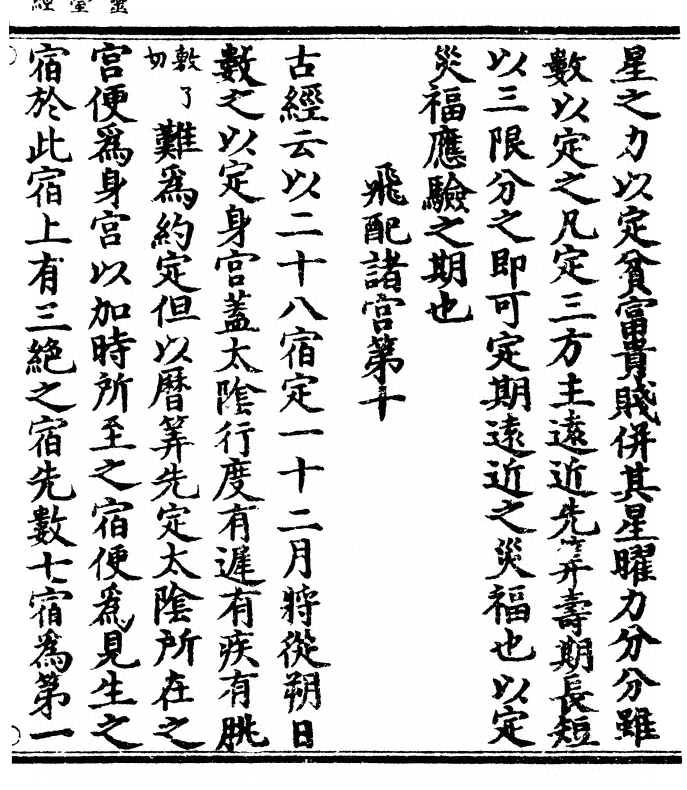 星之力以定貧富貴賤併其星曜力分分雖
數以定之凡定三方主遠近先筭壽期長短
以三限分之即可定期遠近之災福也以定
災福應驗之期也
飛配諸宮第十
古經云以二十八宿定一十二月將從朔日
數之以定身宮蓋太陰行度有遲有疾有朓
敷了切難為約定但以曆筭先定太陰所在之
宮便為身宮以加時所至之宿便為見生之
宿於此宿上有三絕之宿先數七宿為第一